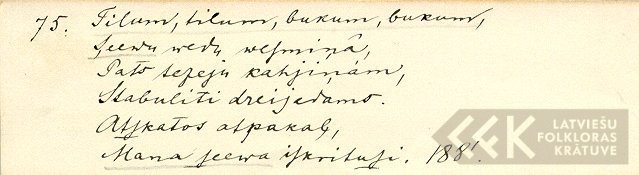 75. Tilum, tilum, bukum, bukum,
Seewu wedu wesmiņâ,
Pats tezeju kahjiņàm,
Stabuliti dreijadams.
Atskatos atpakaļ,
Mana seewa iskritusi. 188¹.
LATVIEŠU
FOLKLORAS
KRĀTUVE